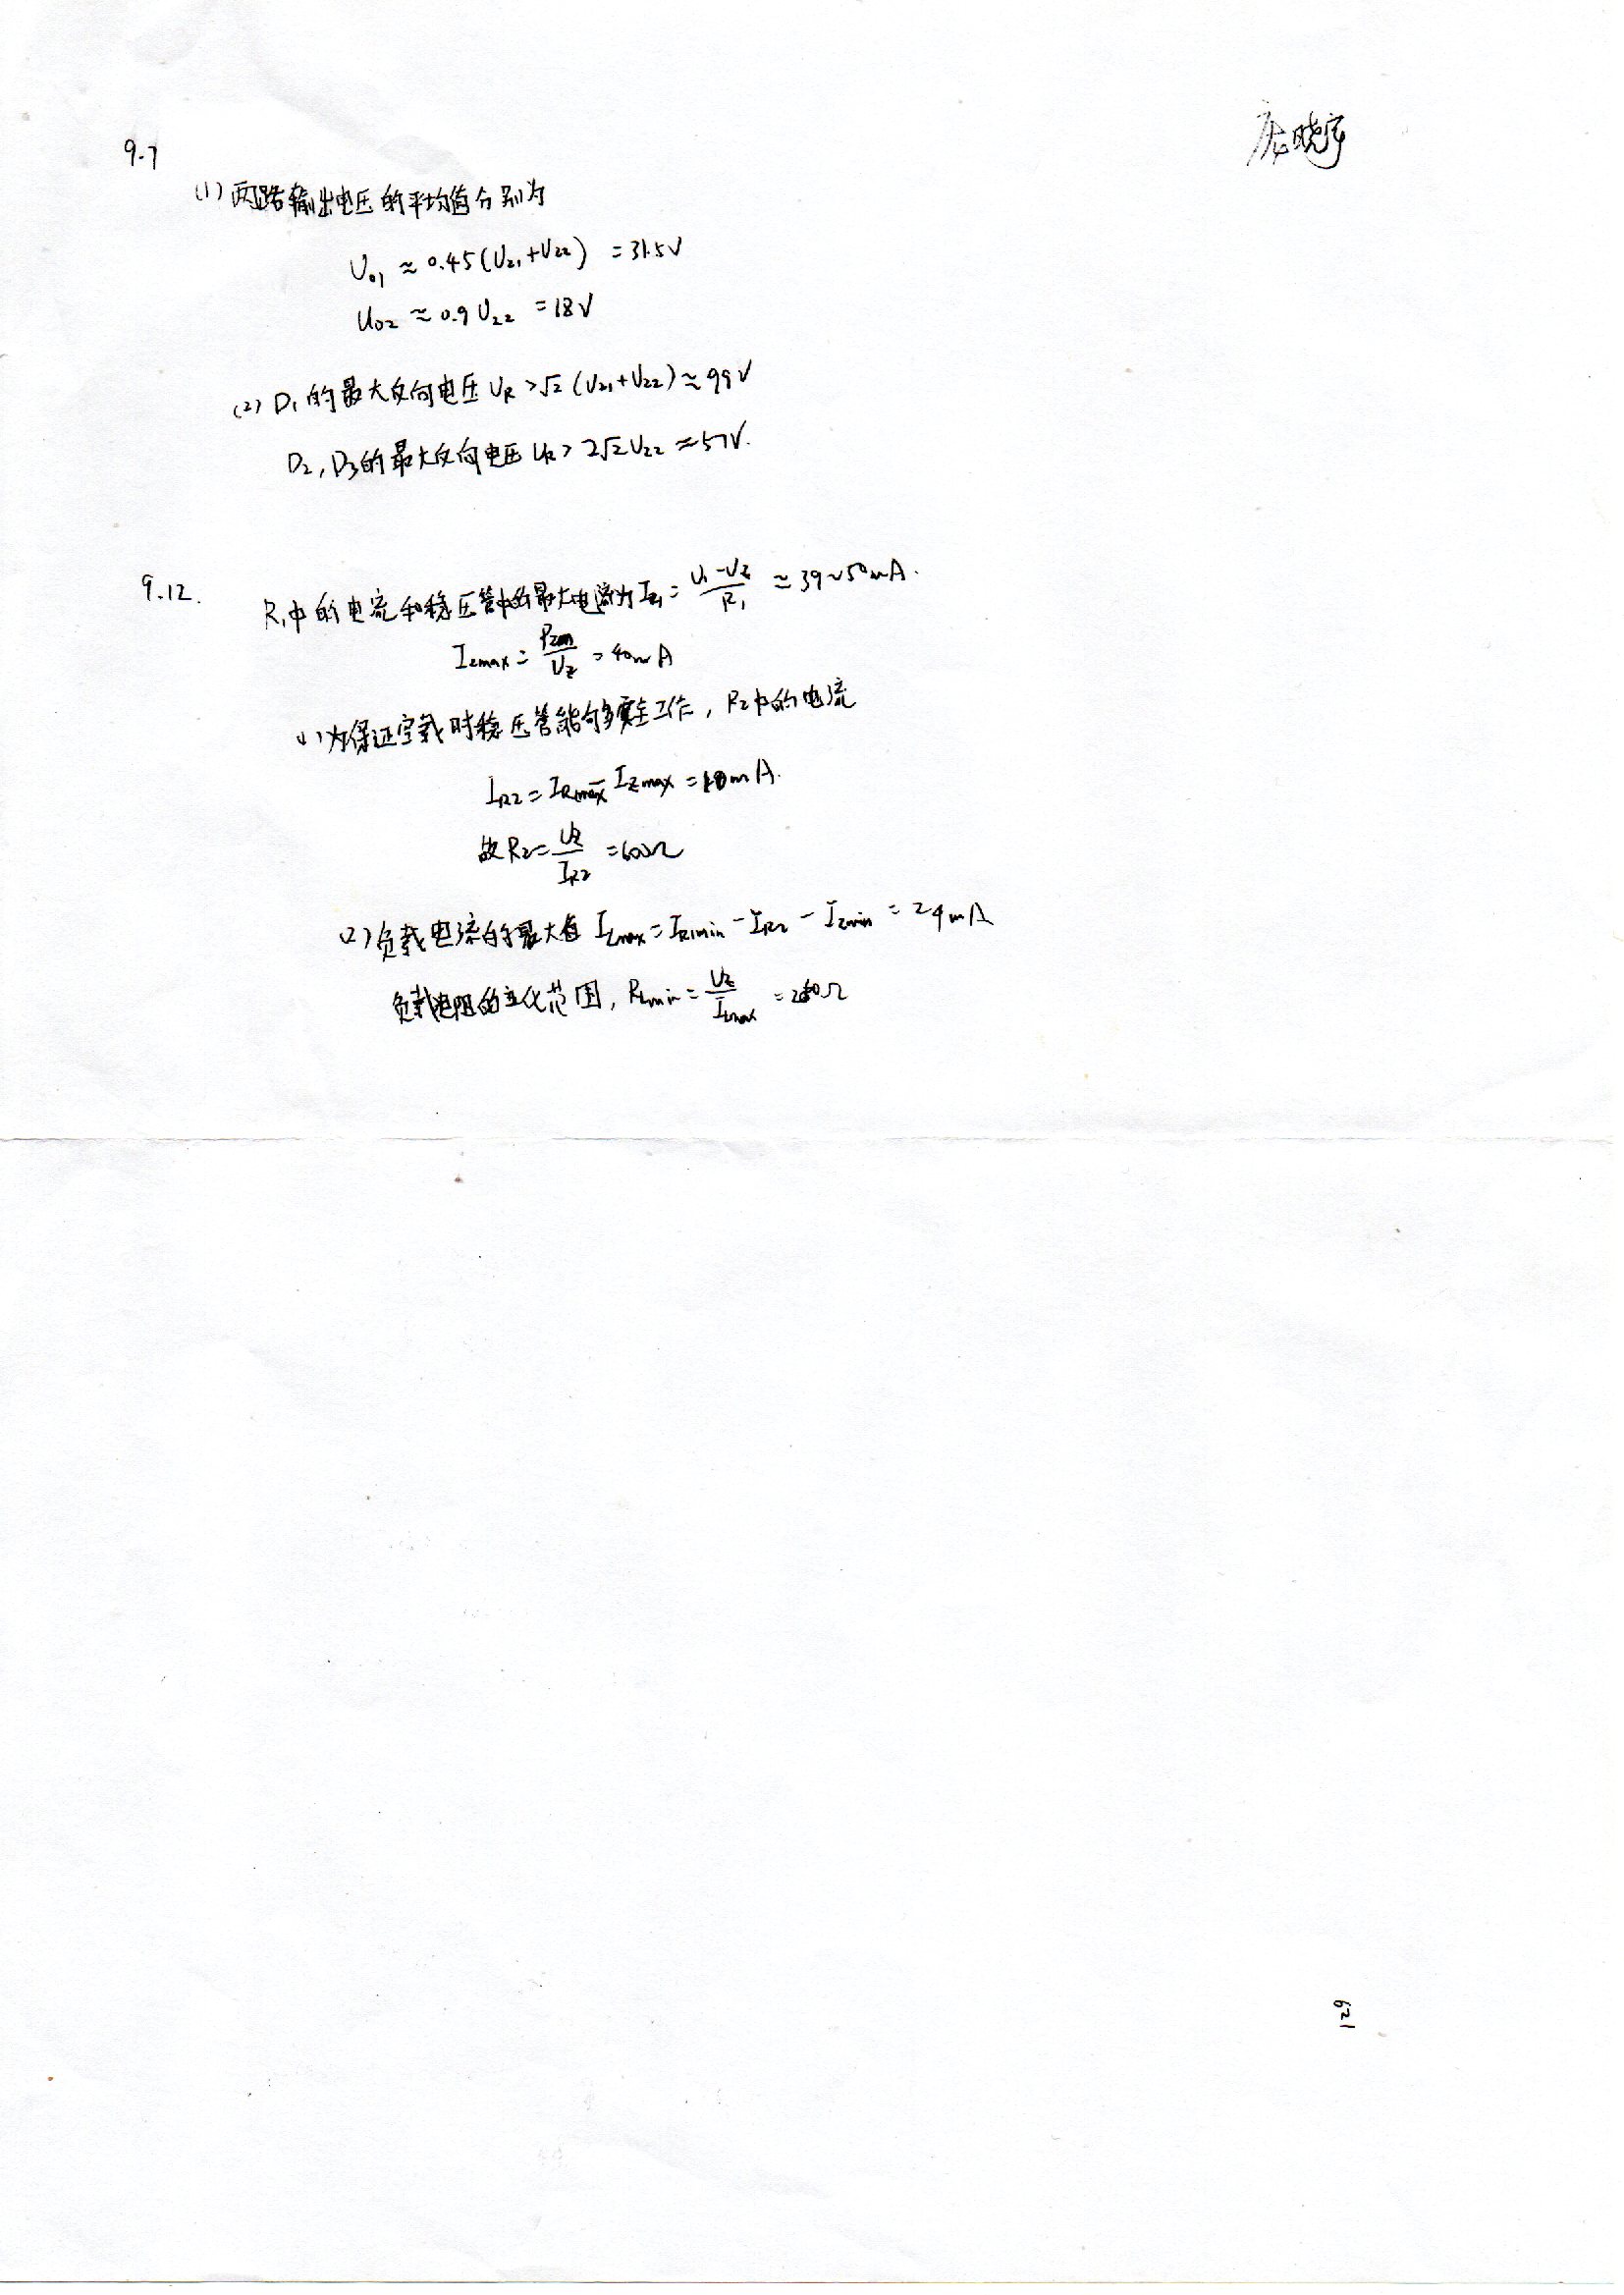 晓宇
9.7
(1) 两路输出电压的平均值分别为
U01 ≈ 0.45(U21+U22) = 31.5V
U02 ≈ 0.9 U22 = 18V
(2) D1的最大反向电压 UR > √2 (U21+U22) ≈ 99V
D2, D3的最大反向电压 UR > 2√2 U22 ≈ 57V.
9.12.
R1中的电流和稳压管中的最大电流为 IR1 = (U1-UZ)/R1 ≈ 39~50mA.
IZmax = PZM/UZ = 40mA
(1) 为保证空载时稳压管能够安全工作, R2中的电流
IR2 = IR1max - IZmax = 10mA.
故 R2 = UZ/IR2 = 600Ω
(2) 负载电流的最大值 ILmax = IR1min - IR2 - IZmin = 24mA
负载电阻的变化范围, RLmin = UZ/ILmax = 250Ω